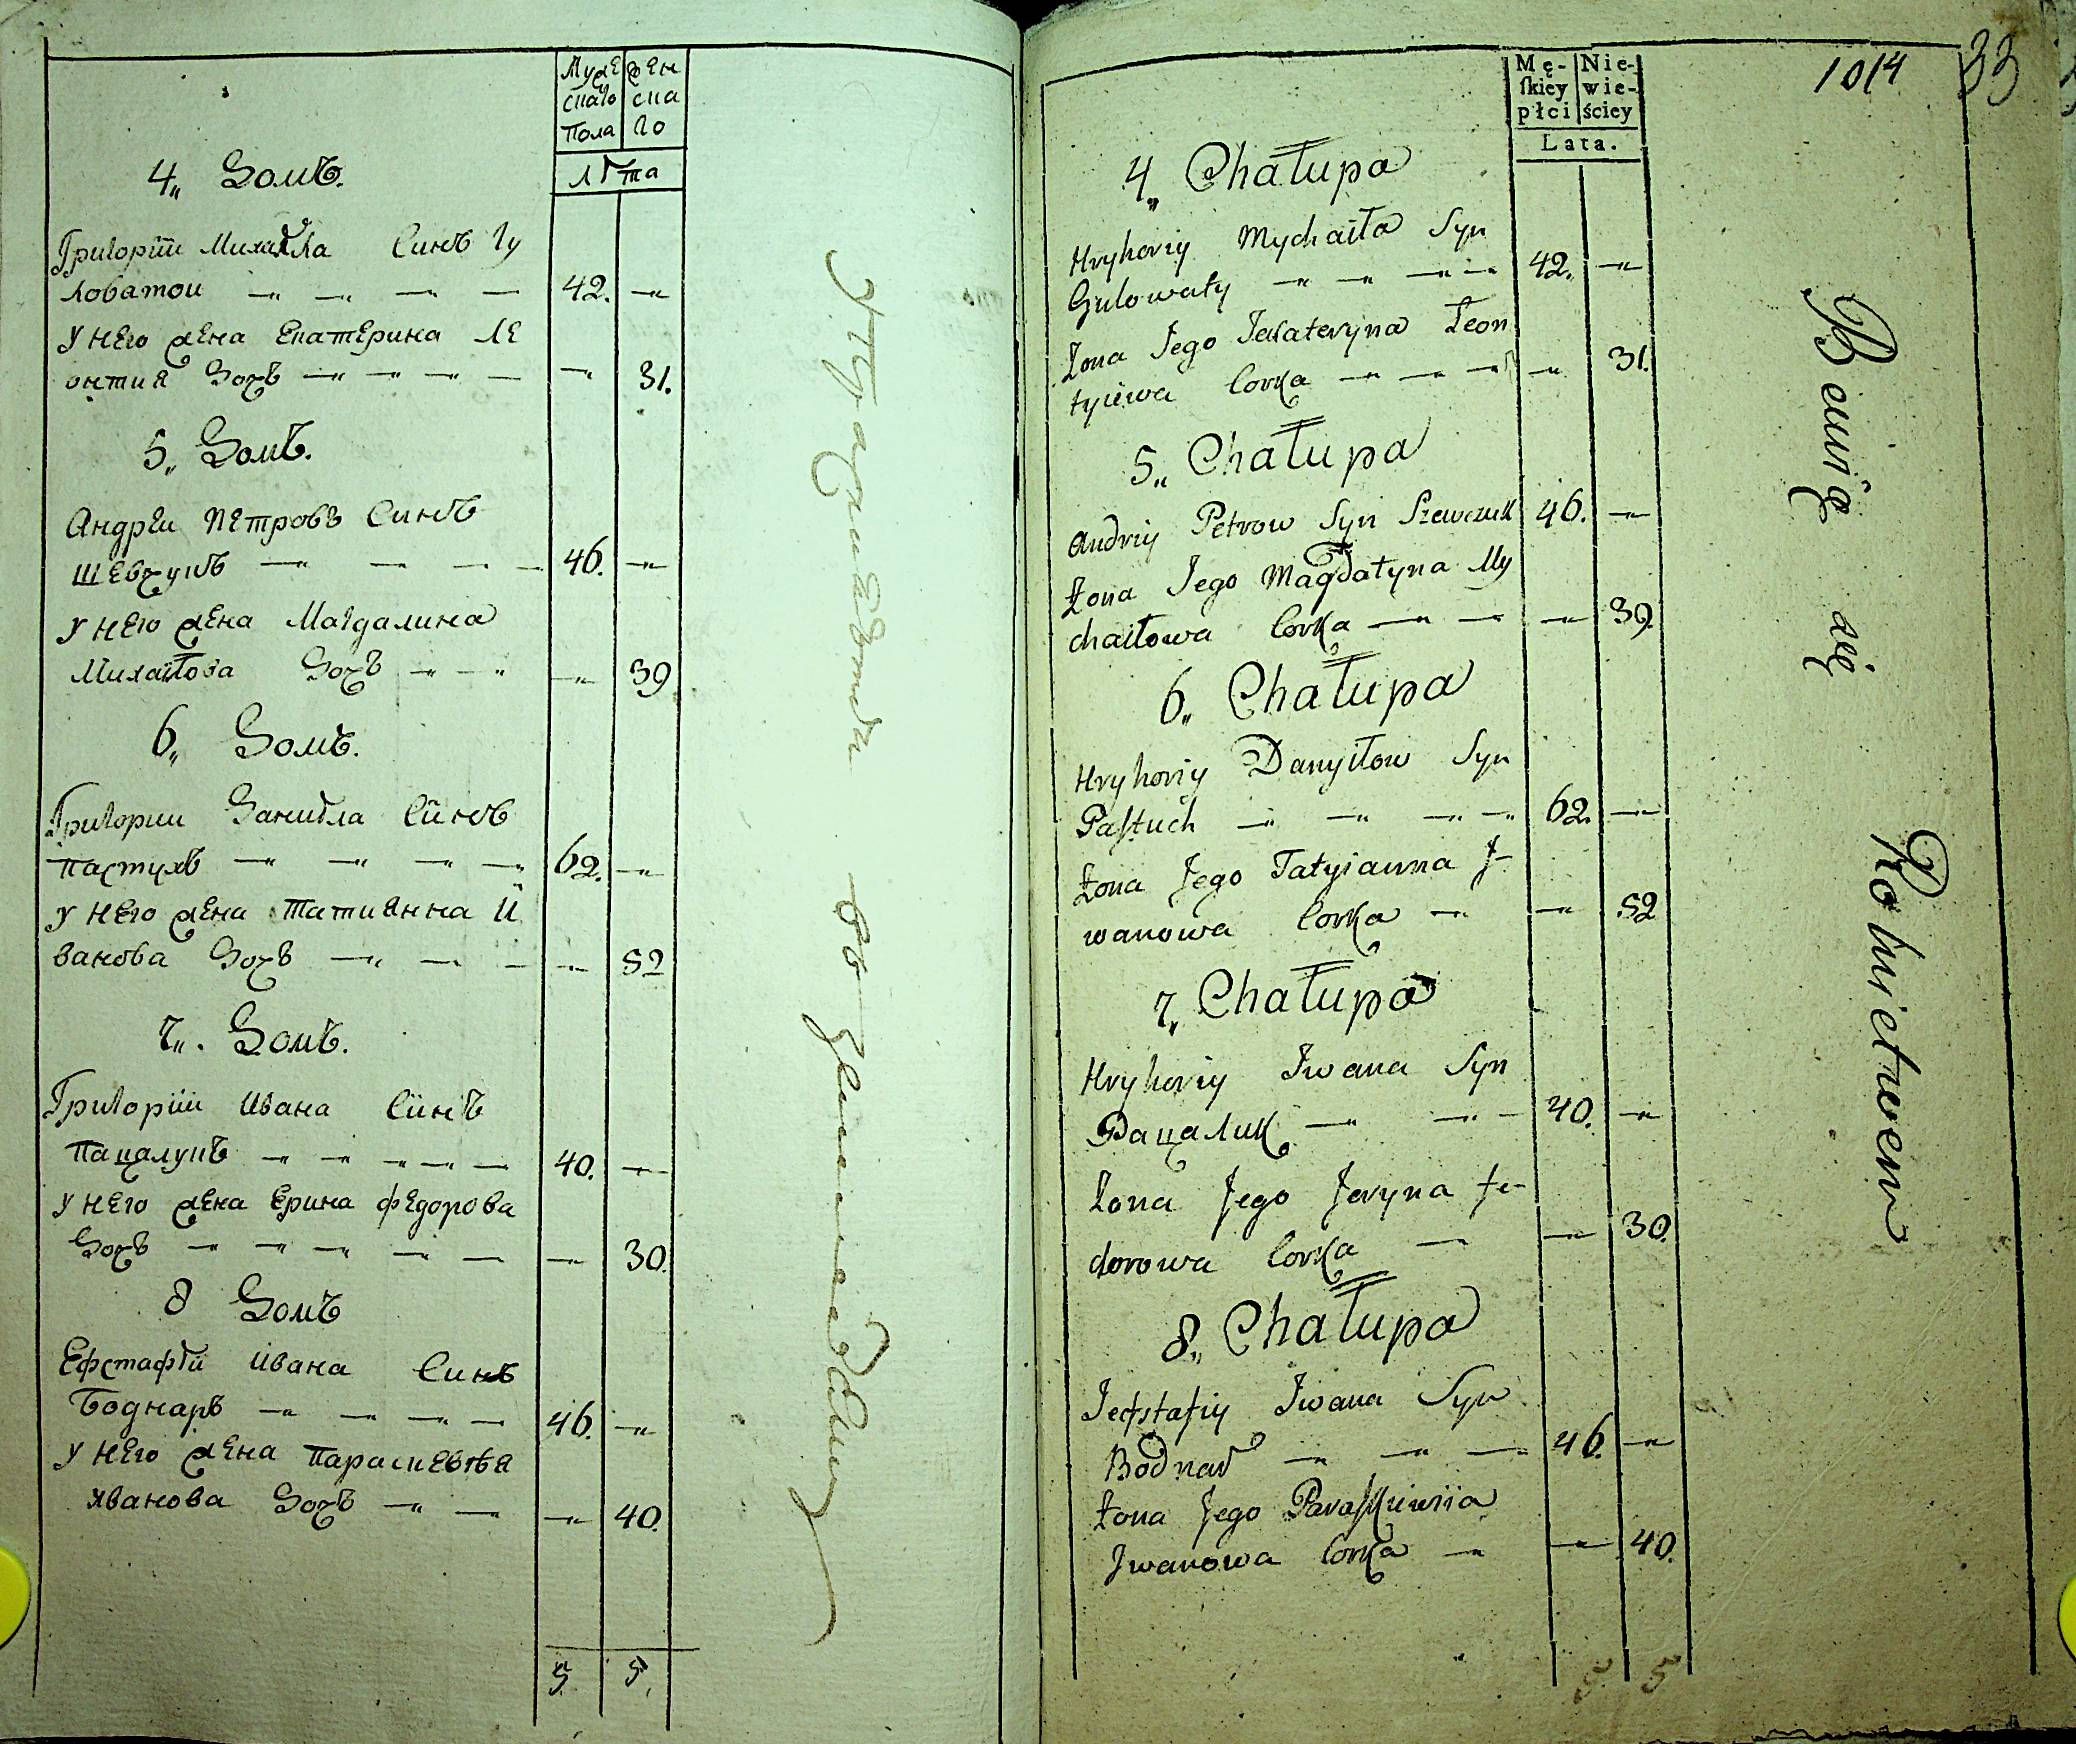 Муже
скаго
Пола
Жен
ска
го
Лѣта
4„ Домъ.
Григорій Михайла Синъ Гу
ловатои
42.
У него жена Екатерина Ле
онтия Дочъ
31.
5„ Домъ.
Андреи Петровъ Синъ
Шевчукъ
46.
У него жена Магдалина
Михайлова Дочъ
39
6„ Домъ.
Григории Данила Синъ
Пастухъ
62.
У него жена Татианна И
ванова Дочъ
52
7„. Домъ.
Григорій Ивана Синъ
Пацалукъ
40.
У него жена Ерина Федорова
Дочъ
30.
8 Домъ
Ефстафій Ивана Синъ
Боднаръ
46.
У него жена Параскевѣя
Иванова Дочъ
40.
5 5
1014
33
Mę-
skiey
płci
Nie-
wie-
ściey
Lata.
4„ Chałupa
Hryhoriy Mychaiła Syn
Gulowaty 42.
Żona Jego Jekateryna Leon
tyiewa Corka 31.
5„ Chałupa
Andriy Petrow Syn Szewczuk 46.
Żona Jego Magdalyna My
chaiłowa Corka 39.
6„ Chałupa
Hryhoriy Danyłow Syn
Pastuch 62.
Żona Jego Tatyianna J-
wanowa Corka 52
7„ Chałupa
Hryhoriy Jwana Syn
Пацалик 40.
Żona Jego Jeryna Fe-
dorowa Corka 30.
8„ Chałupa
Jefstafiy Jwana Syn
Bodnar 46.
Żona Jego Paraskiewiia
Jwanowa Corka 40.
5 5
Bawią się Rolnictwem